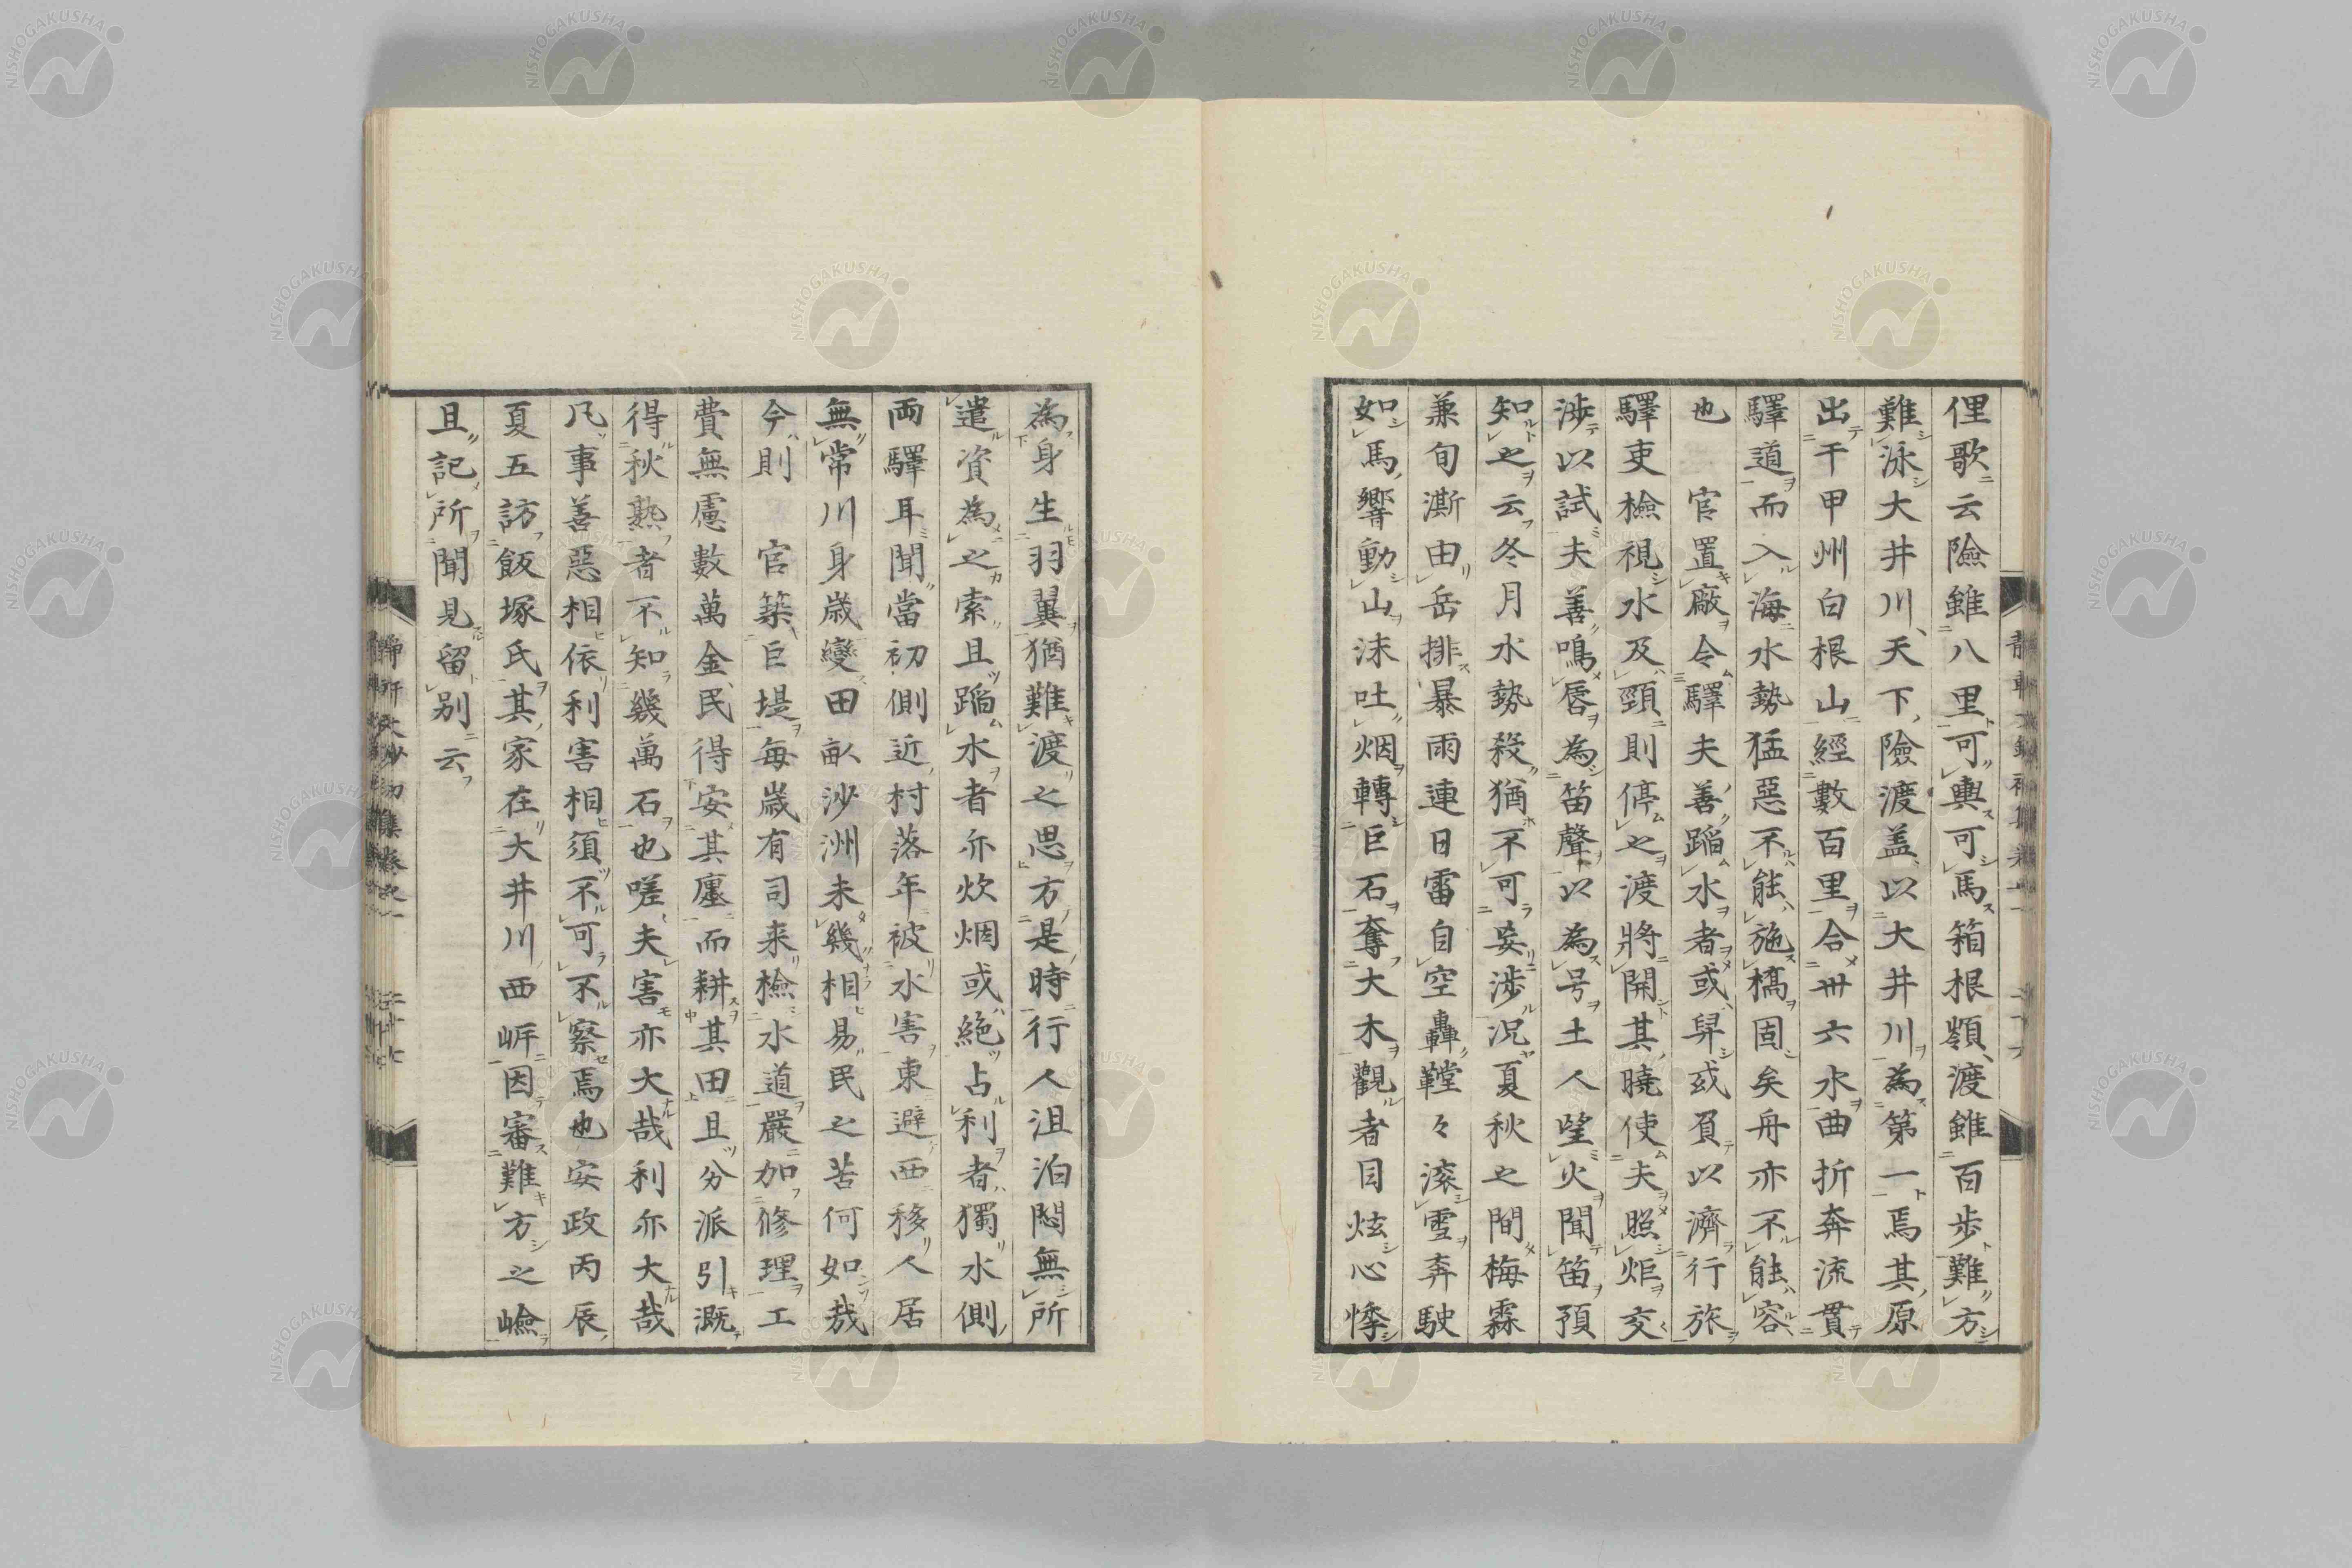 俚歌云險雖八里可輿可馬箱根嶺渡雖百歩難方
難泳大井川天下險渡盖以大井川為第一焉其原
出于甲州白根山經數百里合卅六水曲折奔流貫
驛道而入海水勢猛惡不能施橋固矣舟亦不能容
也　官置廠令驛夫善蹈水者或舁或負以濟行旅
驛吏檢視水及頸則停之渡將開其曉使夫照炬交
渉以試夫善鳴唇為笛聲以為号土人望火聞笛預
知之云冬月水勢殺猶不可妄渉况夏秋之間梅霖
兼旬澌由岳排暴雨連日雷自空轟鞺々滚雪奔駛
如馬響動山沫吐烟轉巨石奪大木觀者目炫心悸
為身生羽翼猶難渡之思方是時行人沮泊悶無所
遣資為之索且蹈水者亦炊烟或絶占利者獨水側
両驛耳聞當初側近村落年被水害東避西移人居
無常川身歳變田畝沙洲未幾相易民之苦何如哉
今則　官築巨堤毎歳有司来檢水道嚴加修理工
費無慮數萬金民得安其廛而耕其田且分派引溉
得秋熟者不知幾萬石也嗟夫害亦大哉利亦大哉
凡事善惡相依利害相須不可不察焉也安政丙辰
夏五訪飯塚氏其家在大井川西岸因審難方之嶮
且記所聞見留別云
NISHOGAKUSHA